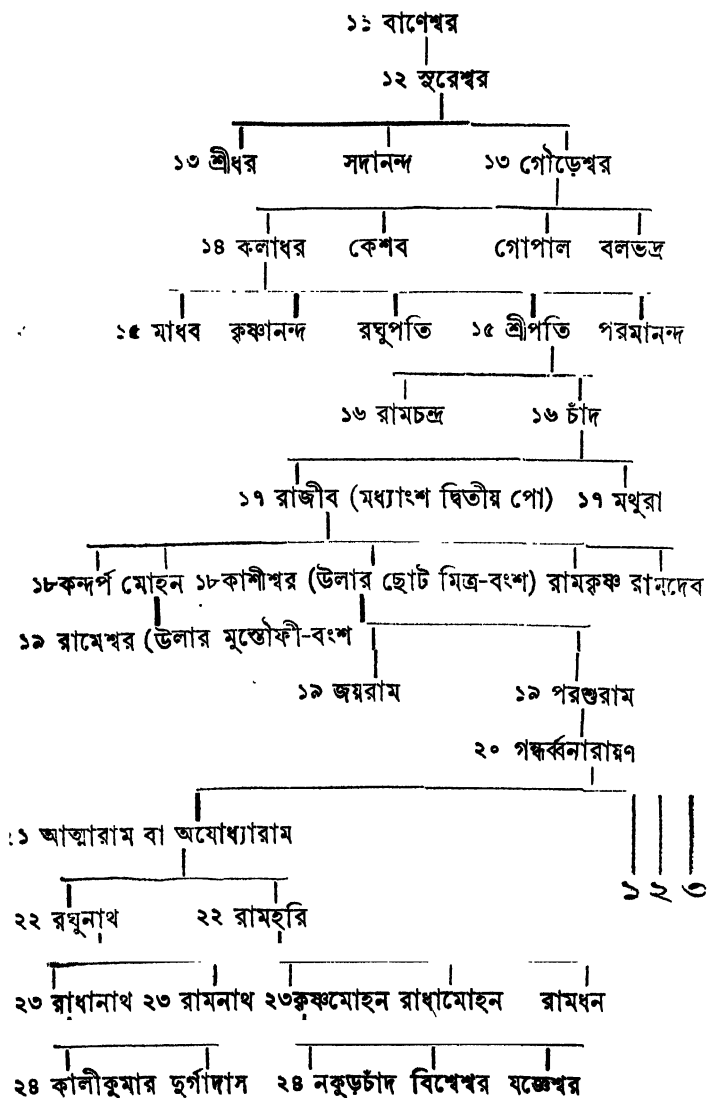 ১১ বাণেশ্বর
১২ সুরেশ্বর
১৩ শ্রীধর সদানন্দ ১৩ গৌড়েশ্বর
১৪ কলাধর কেশব গোপাল বলভদ্র
১৫ মাধব কৃষ্ণানন্দ রঘুপতি ১৫ শ্রীপতি পরমানন্দ
১৬ রামচন্দ্র ১৬ চাঁদ
১৭ রাজীব (মধ্যাংশ দ্বিতীয় পো) ১৭ মথুরা
১৮কন্দর্প মোহন ১৮কাশীশ্বর (উলার ছোট মিত্র-বংশ) রামকৃষ্ণ রামদেব
১৯ রামেশ্বর (উলার মুস্তৌফী-বংশ
১৯ জয়রাম ১৯ পরশুরাম
২০ গন্ধর্ব্বনারায়ণ
১ ২ ৩
২১ আত্মারাম বা অযোধ্যারাম
২২ রঘুনাথ ২২ রামহরি
২৩ রাধানাথ ২৩ রামনাথ ২৩কৃষ্ণমোহন রাধামোহন রামধন
২৪ কালীকুমার দুর্গাদাস ২৪ নকুড়চাঁদ বিশ্বেশ্বর যজ্ঞেশ্বর